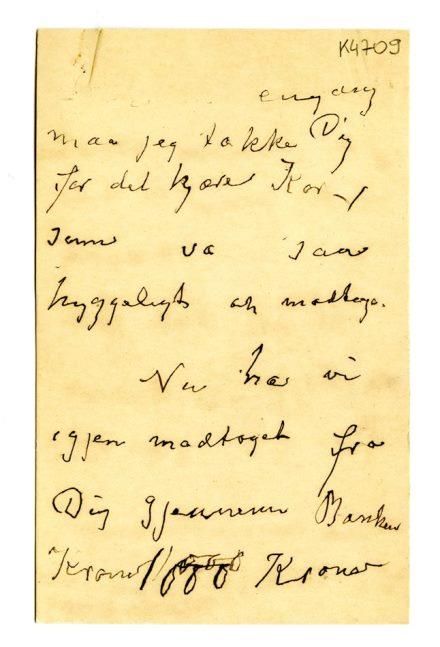 K4709
engang
maa jeg takke Dig
for det kjære Kor-
som va saa
hyggeligt at modtage.
Nu har vi
igjen modtaget fra
Dig gjennem Banken
Kroner 1000 Kroner